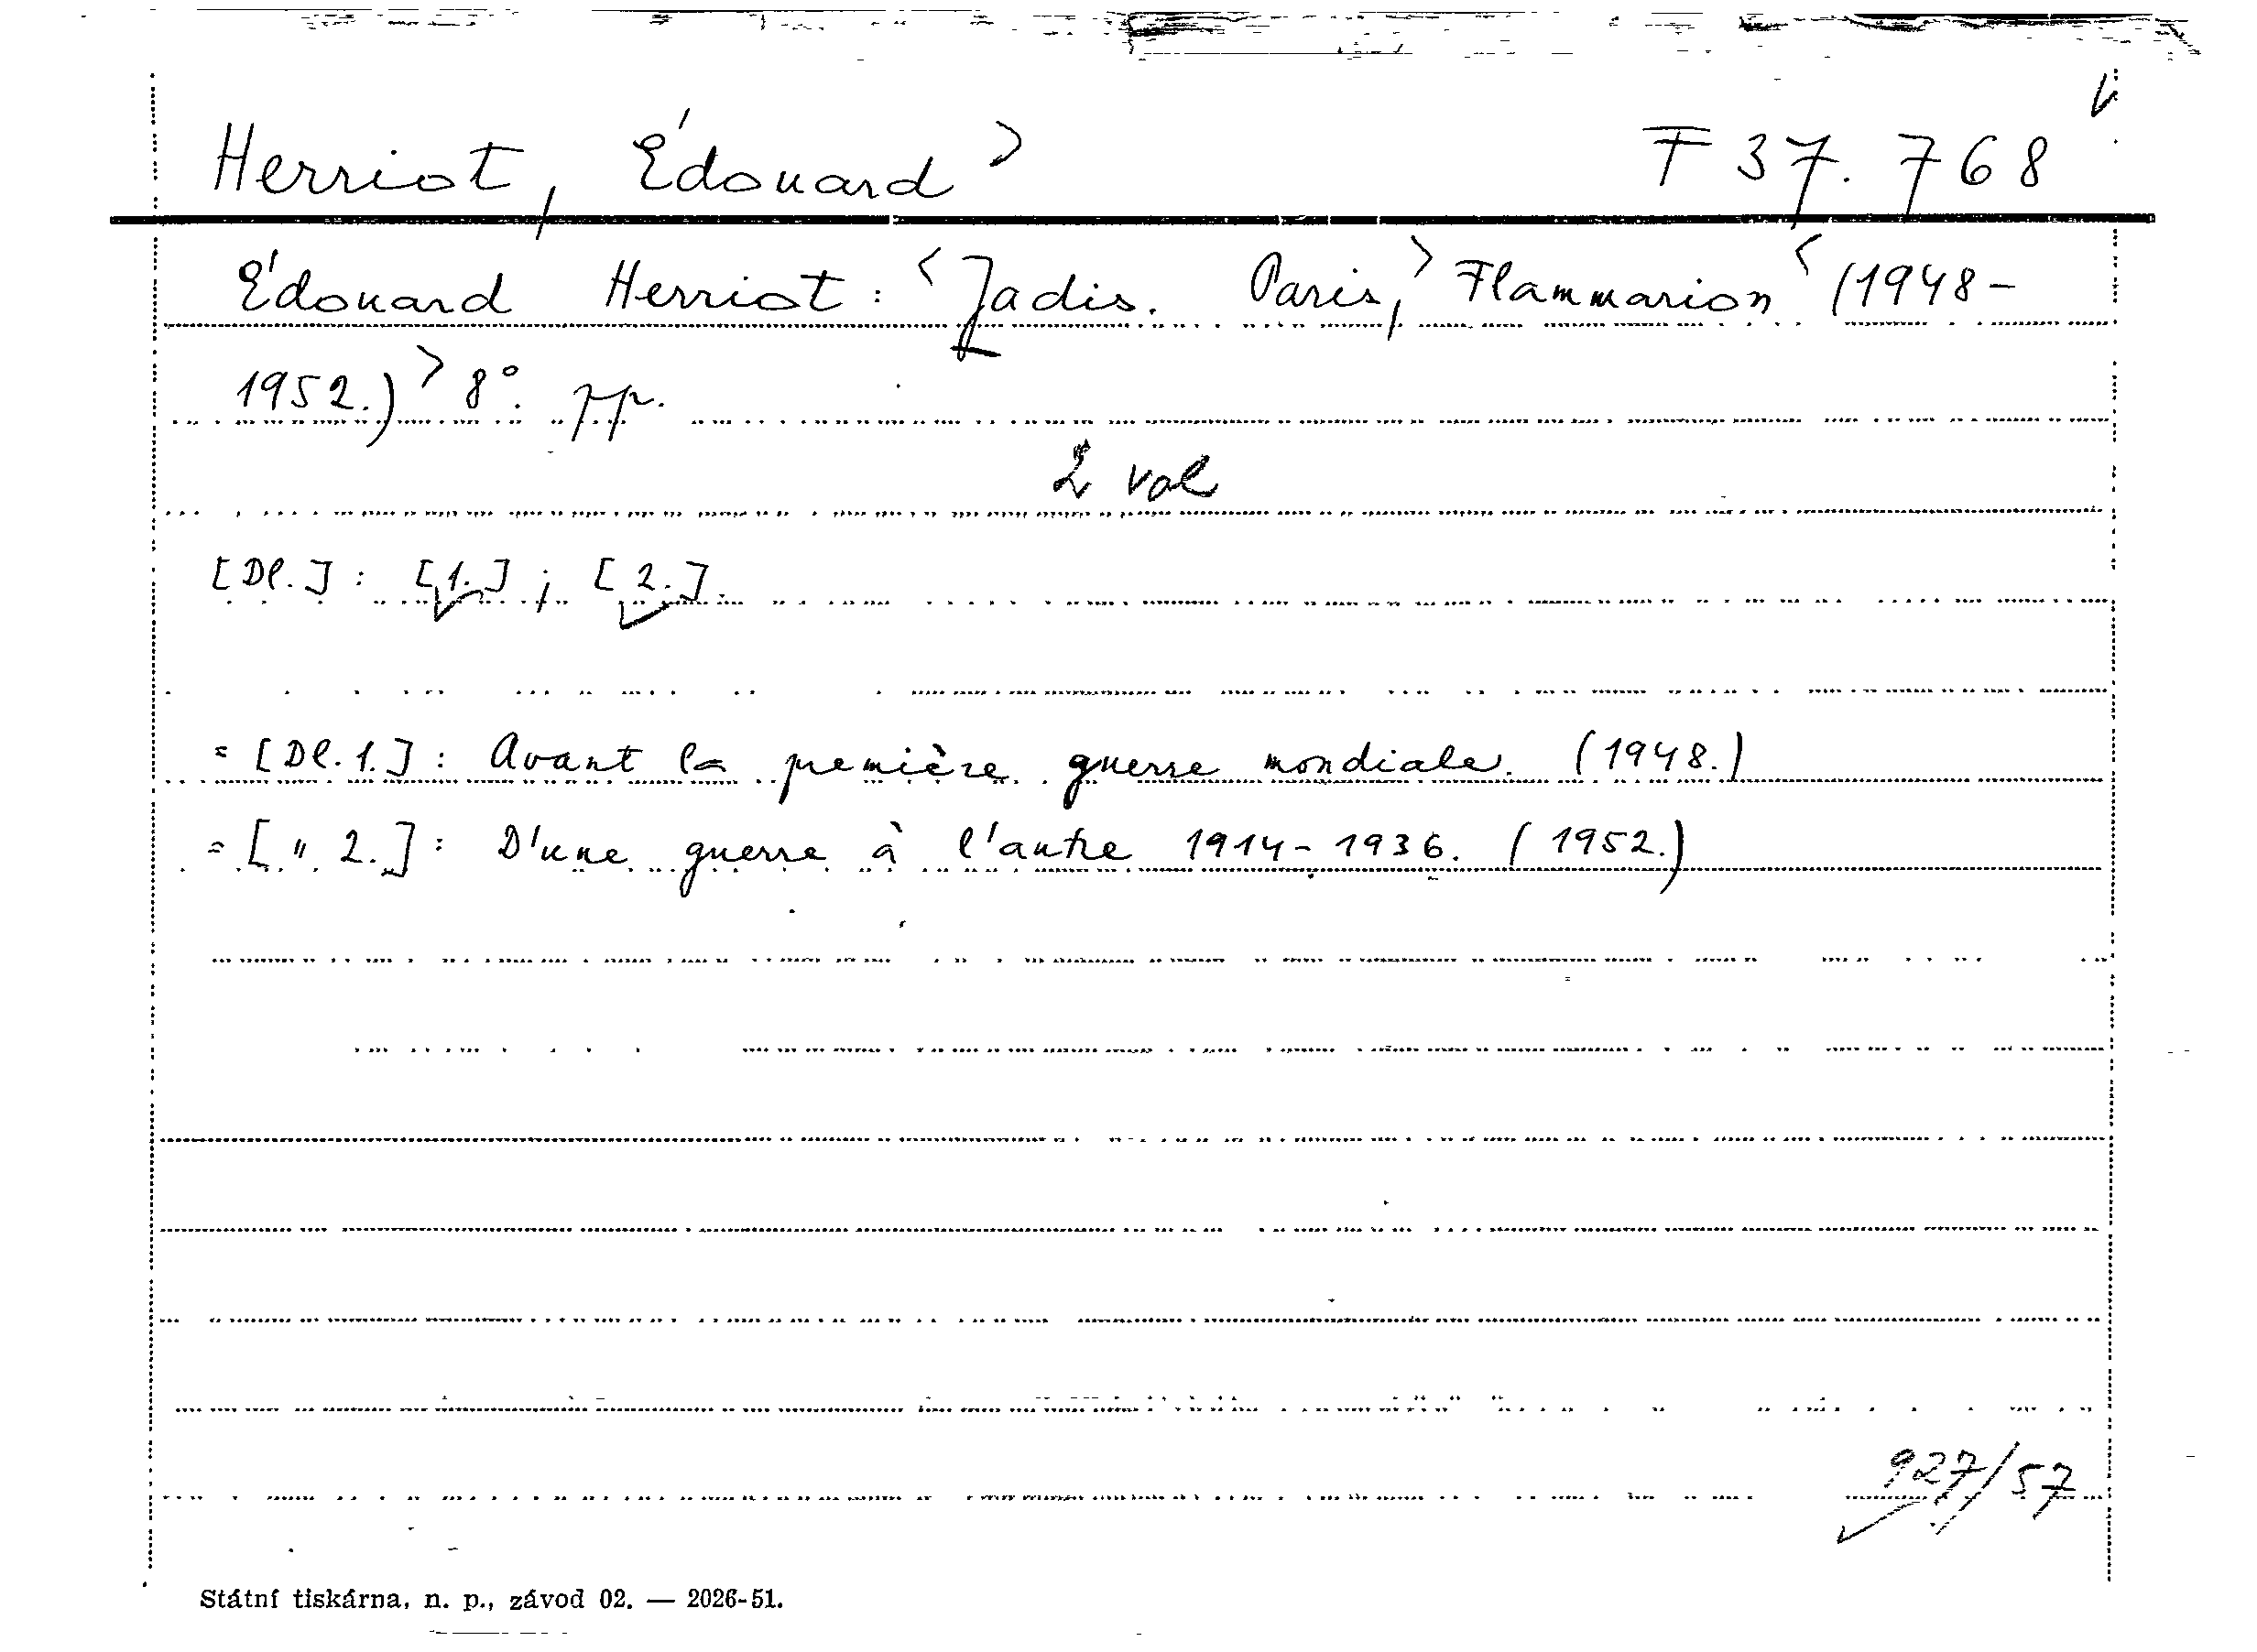 Herriot, Édouard> F 37.768
Édouard Herriot: <Jadis. Paris,> Flammarion <(1948-
1952.)> 8°. pp.
2 vol
[Dl.]: [1.]; [2.].
= [Dl. 1.]: Avant la première guerre mondiale. (1948.)
= [ " 2.]: D'une guerre à l'autre 1914-1936. (1952.)
927/57
Státní tiskárna, n. p., závod 02. — 2026-51.